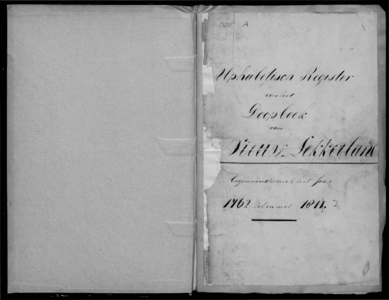 A
Alphabetisch Register
van het
Doopboek
van
Nieuw Lekkerland
beginnende met het jaar
1762 tot en met 1811.